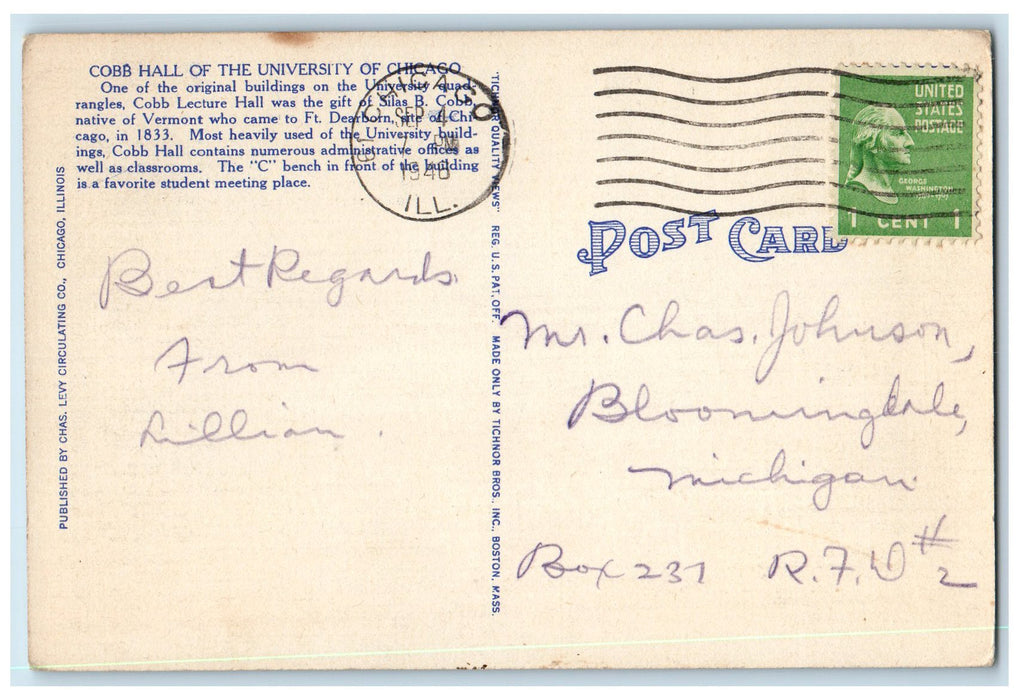 COBB HALL OF THE UNIVERSITY OF CHICAGO
One of the original buildings on the University quad-
rangles, Cobb Lecture Hall was the gift of Silas B. Cobb,
native of Vermont who came to Ft. Dearborn, site of Chi-
cago, in 1833. Most heavily used of the University build-
ings, Cobb Hall contains numerous administrative offices as
well as classrooms. The "C" bench in front of the building
is a favorite student meeting place.
PUBLISHED BY CHAS. LEVY CIRCULATING CO., CHICAGO, ILLINOIS
Best Regards
From
Lillian.
"TICHNOR QUALITY VIEWS" REG. U. S. PAT. OFF. MADE ONLY BY TICHNOR BROS. INC., BOSTON, MASS.
CHICAGO
SEP 4
PM
1946
ILL.
UNITED
STATES
POSTAGE
GEORGE
WASHINGTON
1 CENT 1
POST CARD
Mr. Chas. Johnson,
Bloomingdale,
Michigan
Box 237 R.F.D #2